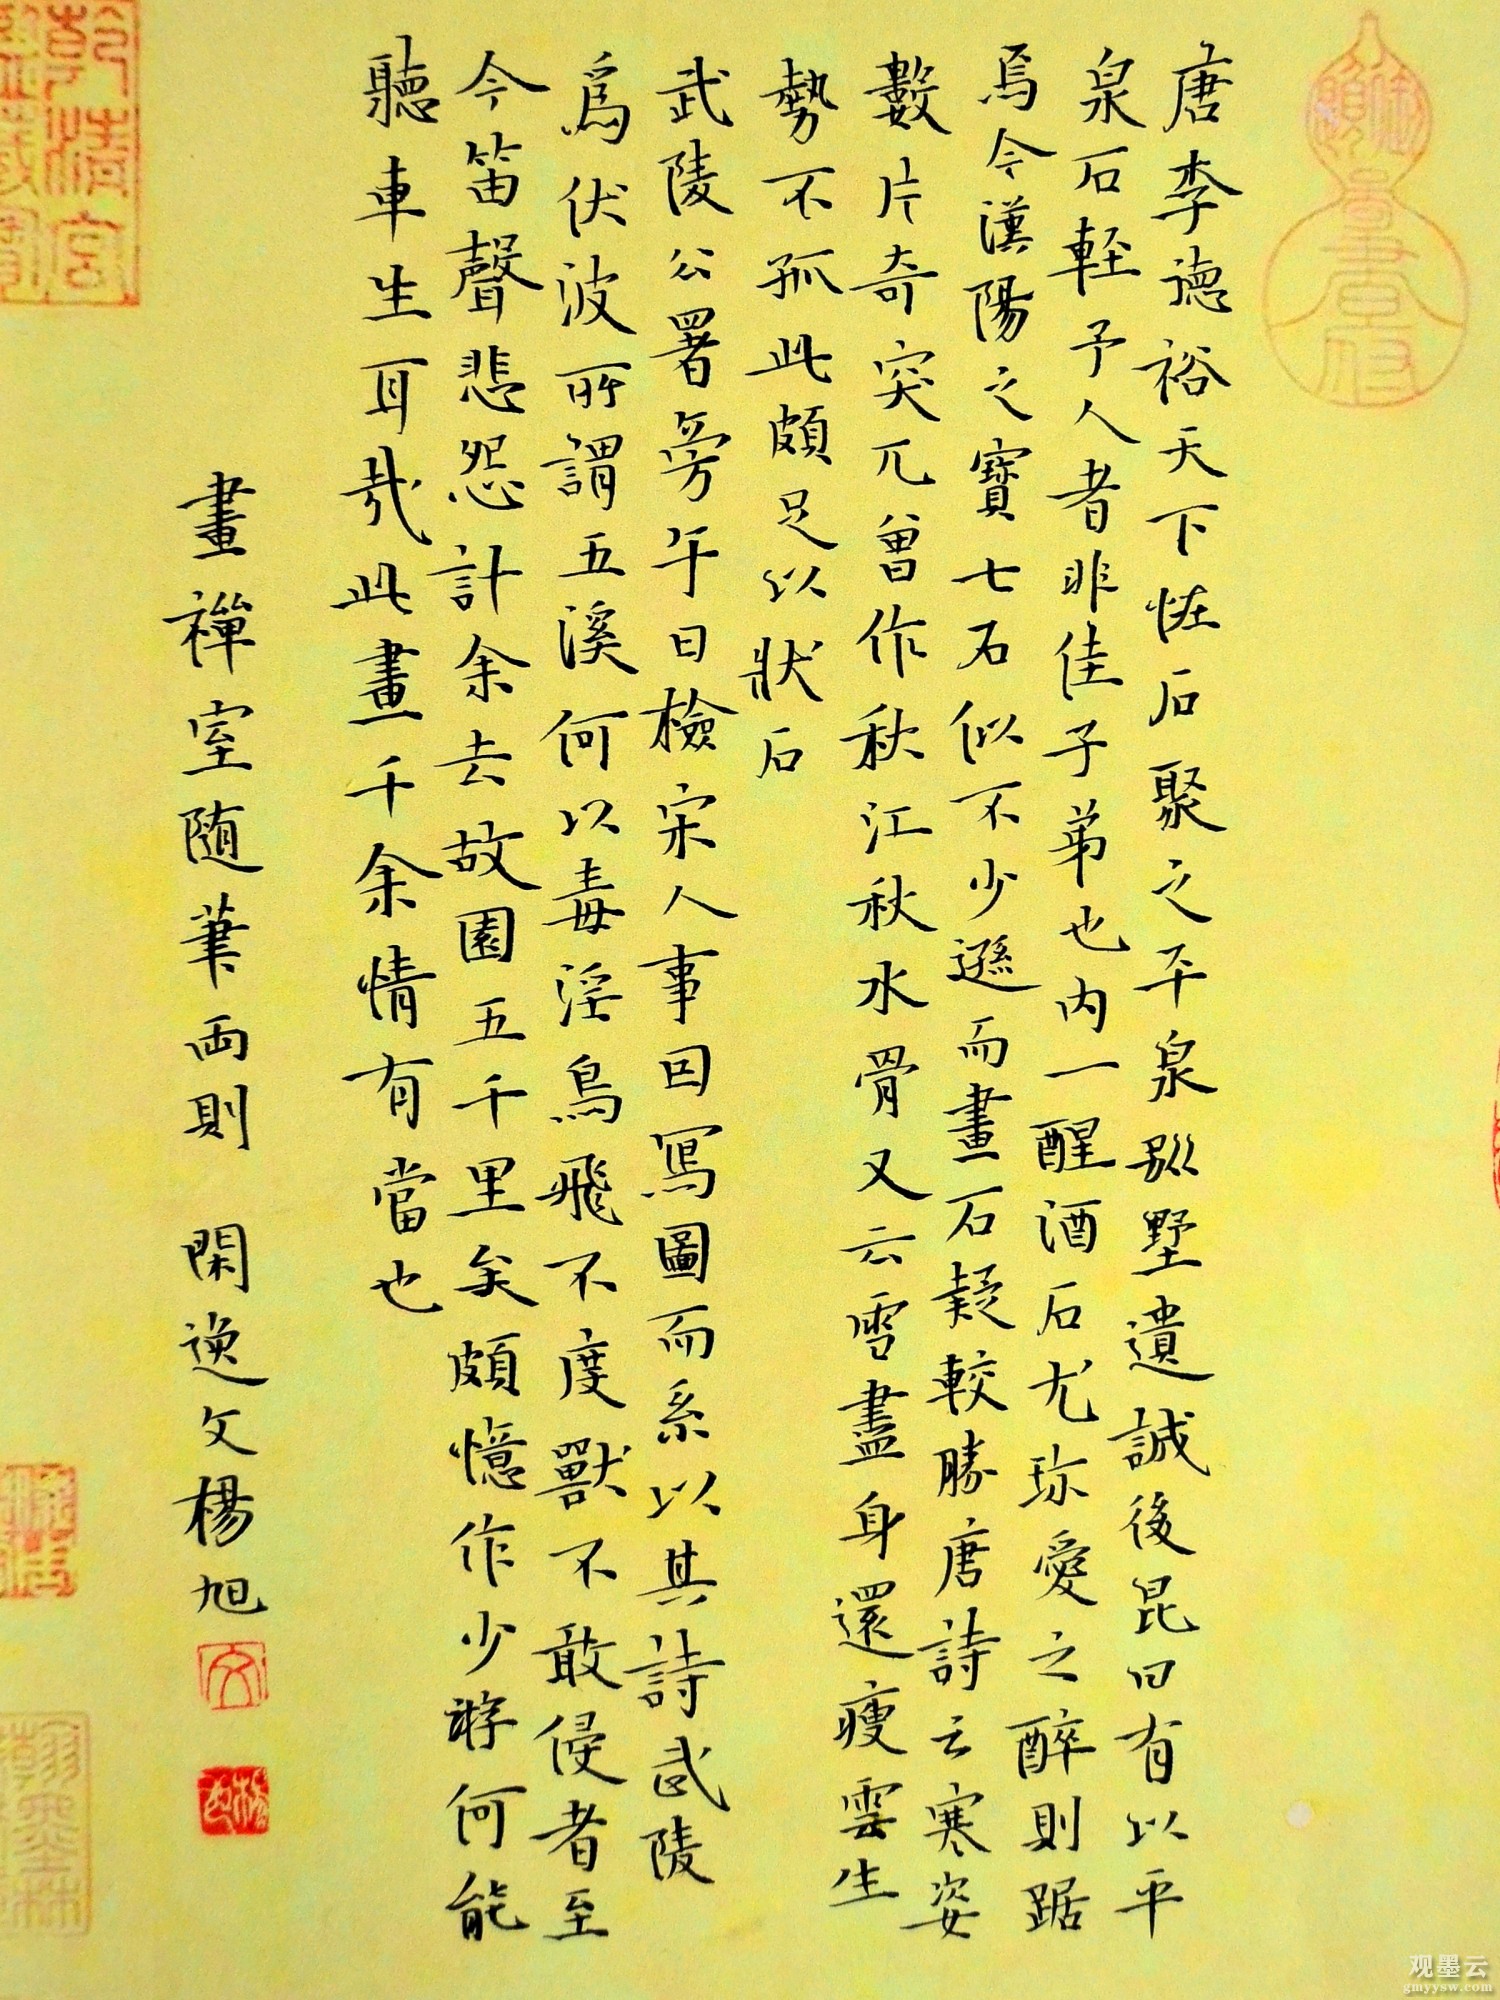 唐李德裕天下恠石聚之平泉别墅遺誡後昆曰有以平
泉石輕予人者非佳子弟也内一醒酒石尤珎愛之醉則踞
焉今漢陽之寶七石似不少遜而畫石疑較勝唐詩云寒姿
數片奇突兀曾作秋江秋水骨又云雪盡身還瘦雲生
勢不孤此頗足以狀石
武陵公署旁午日檢宋人事回寫圖而系以其詩武陵
爲伏波所謂五溪何以毒淫鳥飛不度獸不敢侵者至
今笛聲悲怨計余去故園五千里矣頗憶作少游何能
聽車生耳哉此畫千余情有當也
畫禪室随筆兩則 閑逸文楊旭
乾清宮
御書府
翰墨林
观墨云
gmyysw.com